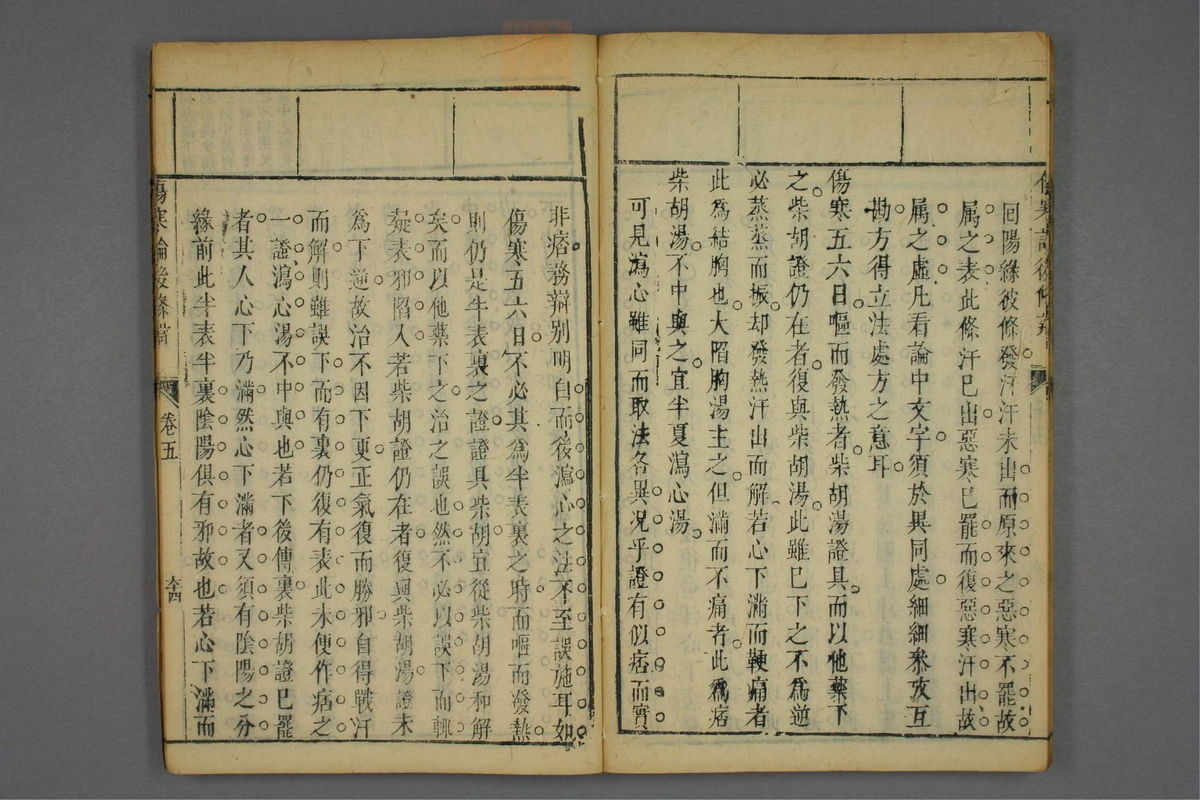 回陽緣彼條發汗汗未出而原來之惡寒不罷故
属之表此條汗已出惡寒已罷而復惡寒汗出故
属之虛凡看論中文字須於異同處細細叅攷互
勘方得立法處方之意耳
傷寒五六日嘔而發熱者柴胡湯證具而以他藥下
之柴胡證仍在者復與柴胡湯此雖已下之不為逆
必蒸蒸而振却發熱汗出而解若心下滿而鞕痛者
此為結胸也大陷胸湯主之但滿而不痛者此為痞
柴胡湯不中與之宜半夏瀉心湯
可見瀉心雖同而取法各異况乎證有似痞而實
非痞務辯别明白而後瀉心之法不至誤施耳如
傷寒五六日不必其為半表裏之時而嘔而發熱
則仍是半表裏之證證具柴胡宜從柴胡湯和解
矣而以他藥下之治之誤也然不必以誤下而輒
疑表邪陷入若柴胡證仍在者復與柴胡湯證未
為下逆故治不因下更正氣復而勝邪自得戰汗
而解則雖誤下而有裏仍復有表此未便作痞之
一證瀉心湯不中與也若下後傳裏柴胡證已罷
者其人心下乃滿然心下滿者又須有陰陽之分
緣前此半表半裏陰陽俱有邪故也若心下滿而
傷寒論後條辯
卷五